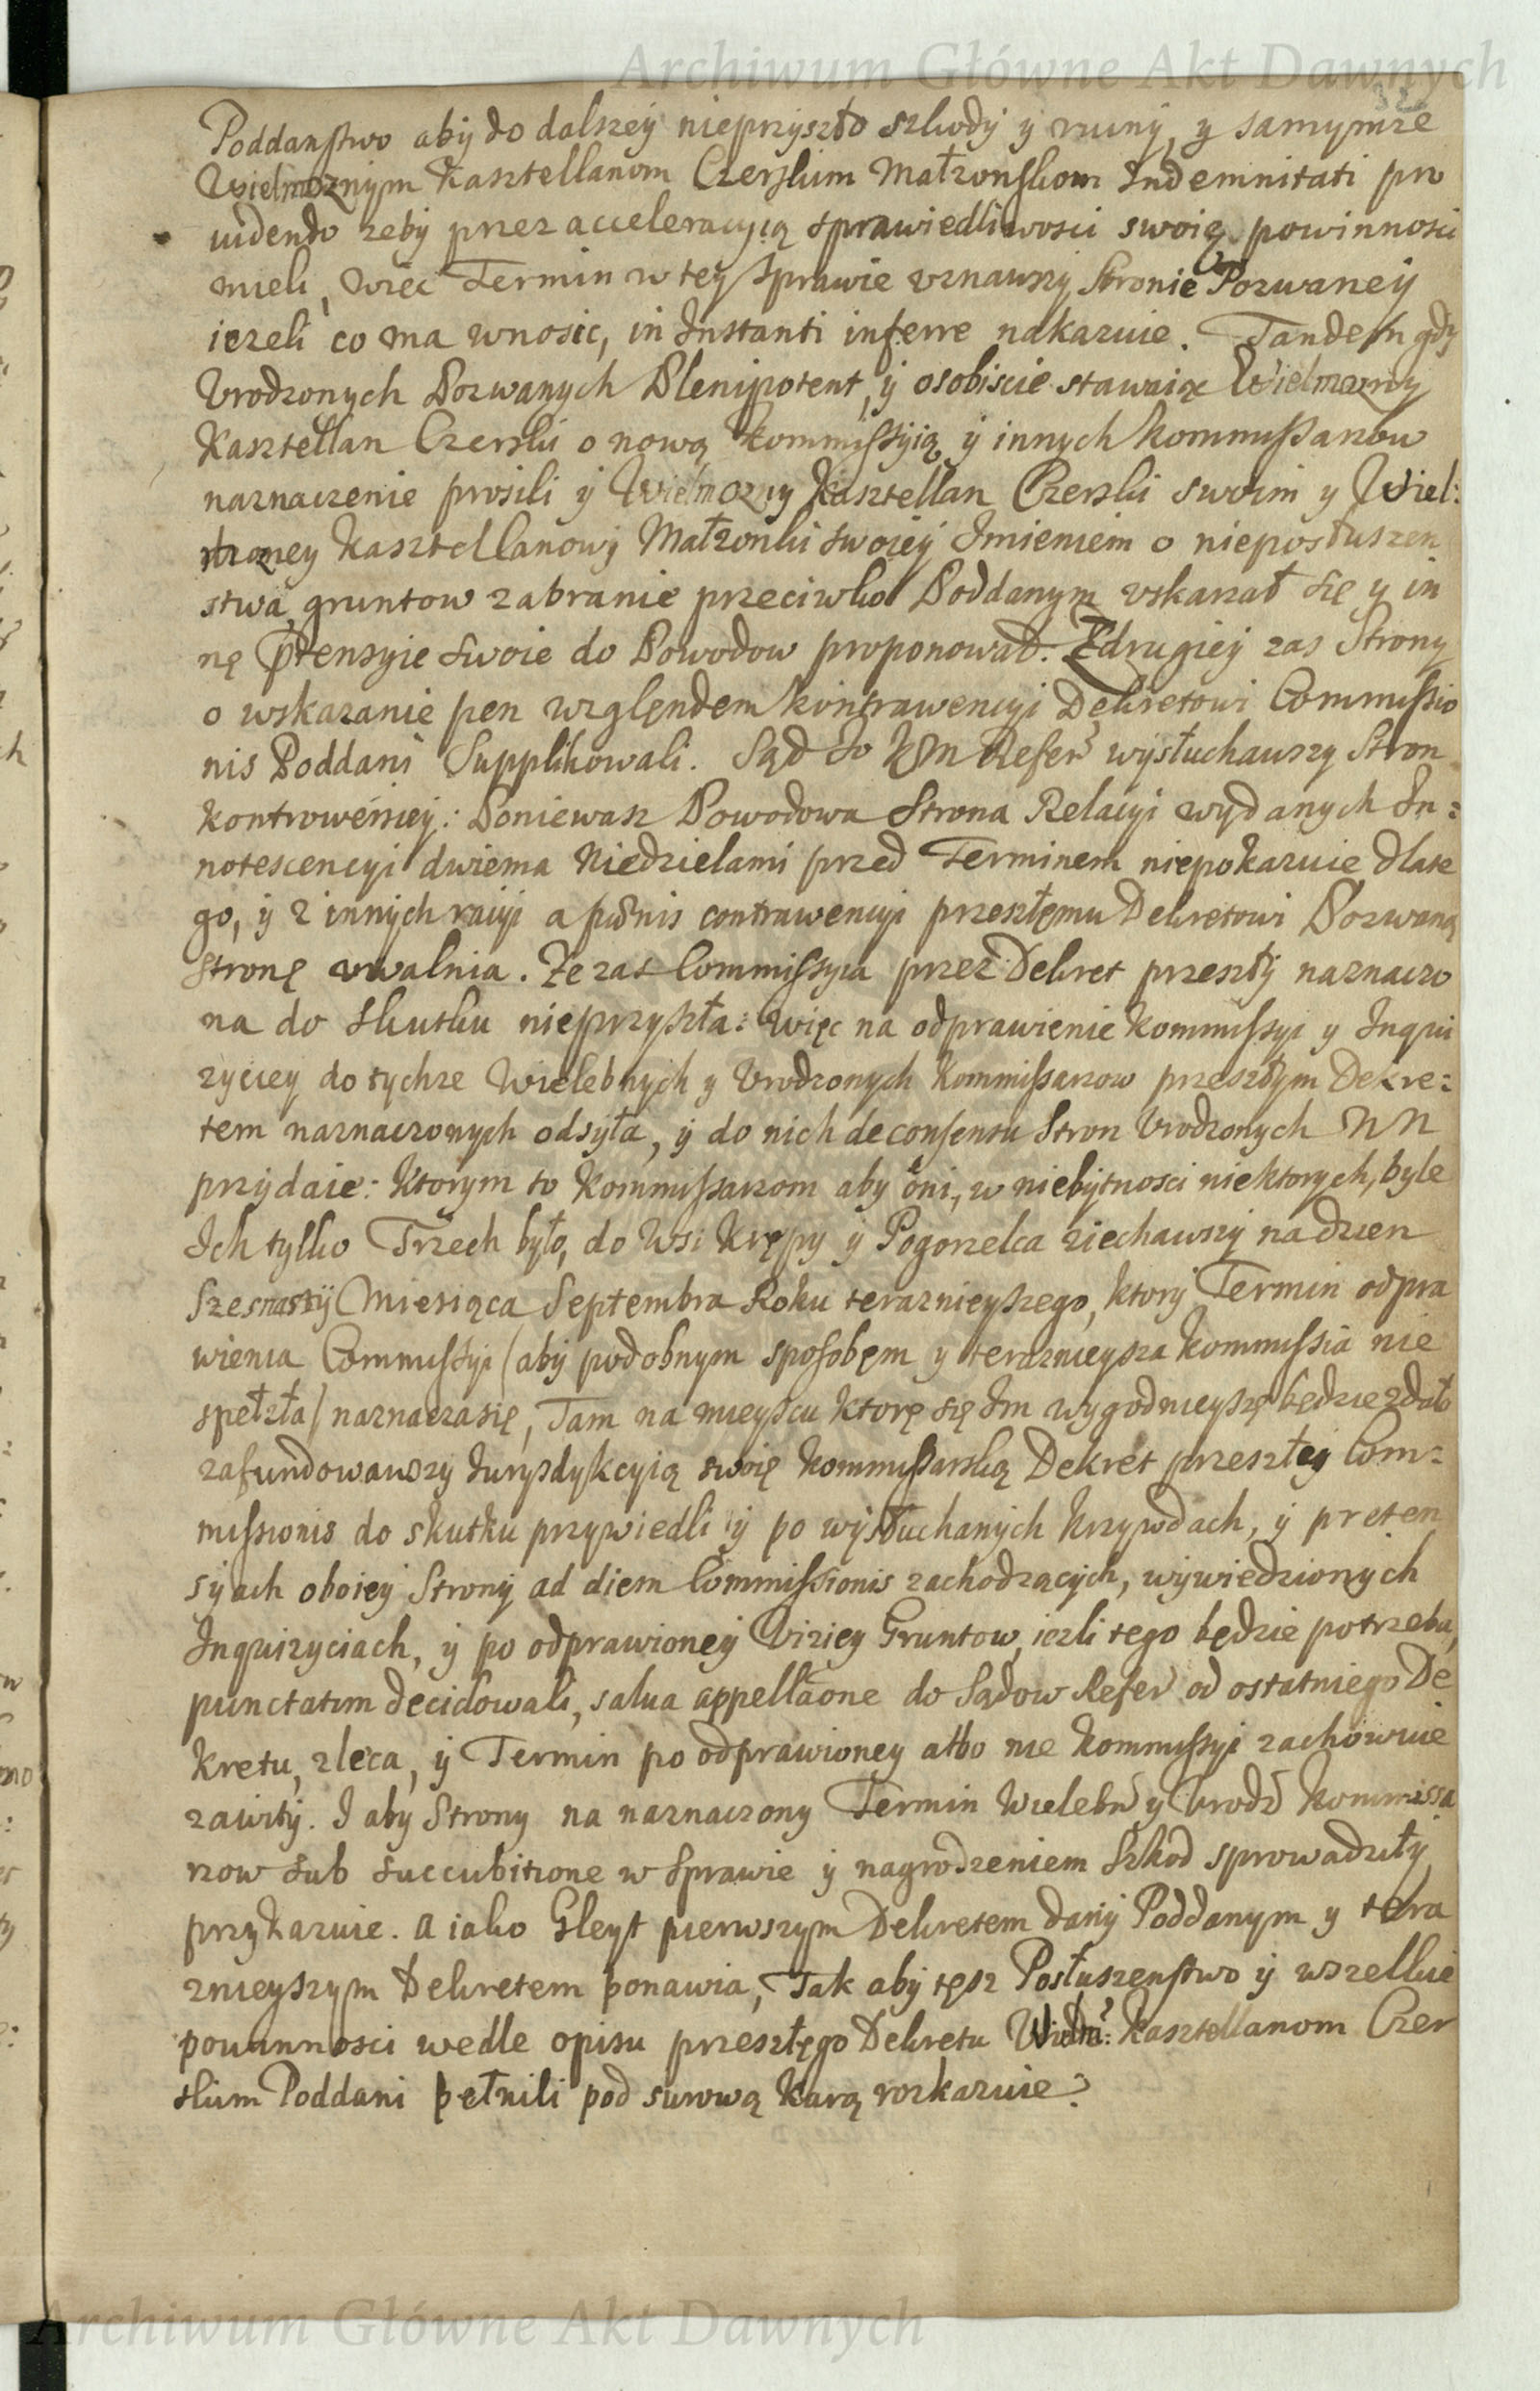 Archiwum Główne Akt Dawnych
Poddanstwo aby do dalszey nieprzyszło szkody y ruiny, y samymze
Wielmoznym Kasztellanom Czerskim Małzonkom Indemnitati pro
uidendo zeby przez acceleracyią sprawiedliwosci swoię powinnosci
mieli, więc Termin w tey sprawie vznawszy Stronie Pozwaney
iezeli co ma wnosic, in Instanti inferre nakazuie. Tandem gdy
Vrodzonych Pozwanych Plenipotent, y osobiscie stawaiąc Wielmozny
Kasztellan Czerski o nową Kommissyią y innych Kommissarzow
naznaczenie prosili y Wielmozny Kasztellan Czerski swoim y Wiel:
mozney Kasztellanowy Małzonki swoiey Imieniem o nieposłuszen
stwa, gruntow zabranie przeciwko Poddanym vskarzał się y in
nę ptensyie swoie do Powodow proponował. Zdrugiey zas Strony
o wskazanie pen względem kontrawencyi Dekretowi Commissio
nis Poddani Supplikowali. Sąd Jo Kr Mci Refer wysłuchawszy Stron
kontrowersiey: Poniewasz Powodowa Strona Relacyi wydanych In:
notescencyi dwiema Niedzielami przed Terminem niepokazuie dlate
go, y z innych racyi a pænis contrawencyi przeszłemu Dekretowi Pozwaną
Stronę vwalnia. Ze zas Commissyia przez Dekret przeszły naznaczo
na do skutku nieprzyszła: więc na odprawienie Kommissyi y Inqui
zyciey do tychze Wielebnych y Vrodzonych Kommissarzow przeszłym Dekre:
tem naznaczonych odsyła, y do nich de consensu Stron Vrodzonych NN
przydaie: Ktorym to Kommissarzom aby oni, w niebytnosci niektorych, byle
Ich tylko Trzech było, do Wsi Krępy y Pogorzelca ziechawszy na dzien
Szesnasty Miesiąca Septembra Roku terazneyszego, ktory Termin odpra
wienia Commissyi (aby podobnym sposobem y teraznieysza Kommissia nie
spełzła) naznacza się, Tam na mieyscu ktorę się Im wygodnieyszę będzie zdało
zafundowawszy Jurysdykcyią swoię Kommissarską Dekret przeszłey Com:
missionis do skutku przywiedli y po wysłuchanych krzywdach, y preten
syach oboiey Strony ad diem Commissionis zachodzących, wywiedzionych
Inquizyciach, y po odprawioney Viziey Gruntow, iezli tego będzie potrzeba,
punctatim decidowali, salua appellaone do Sądow Refer od ostatniego De
kretu, zleca, y Termin po odprawioney albo nie Kommissyi zachowuie
zawity. I aby Strony na naznaczony Termin Wieleb y Vrodz Kommissa
rzow sub succubitione w sprawie y nagrodzeniem szkod sprowadziły
przykazuie. A iako Gleyt pierwszym Dekretem dany Poddanym y tera
znieyszym Dekretem ponawia, Tak aby tęsz Posłuszenstwo y wszelkie
powinnosci wedle opisu przeszłego Dekretu Wielm: Kasztellanom Czer
skim Poddani pełnili pod surową karą rozkazuie.
Archiwum Główne Akt Dawnych